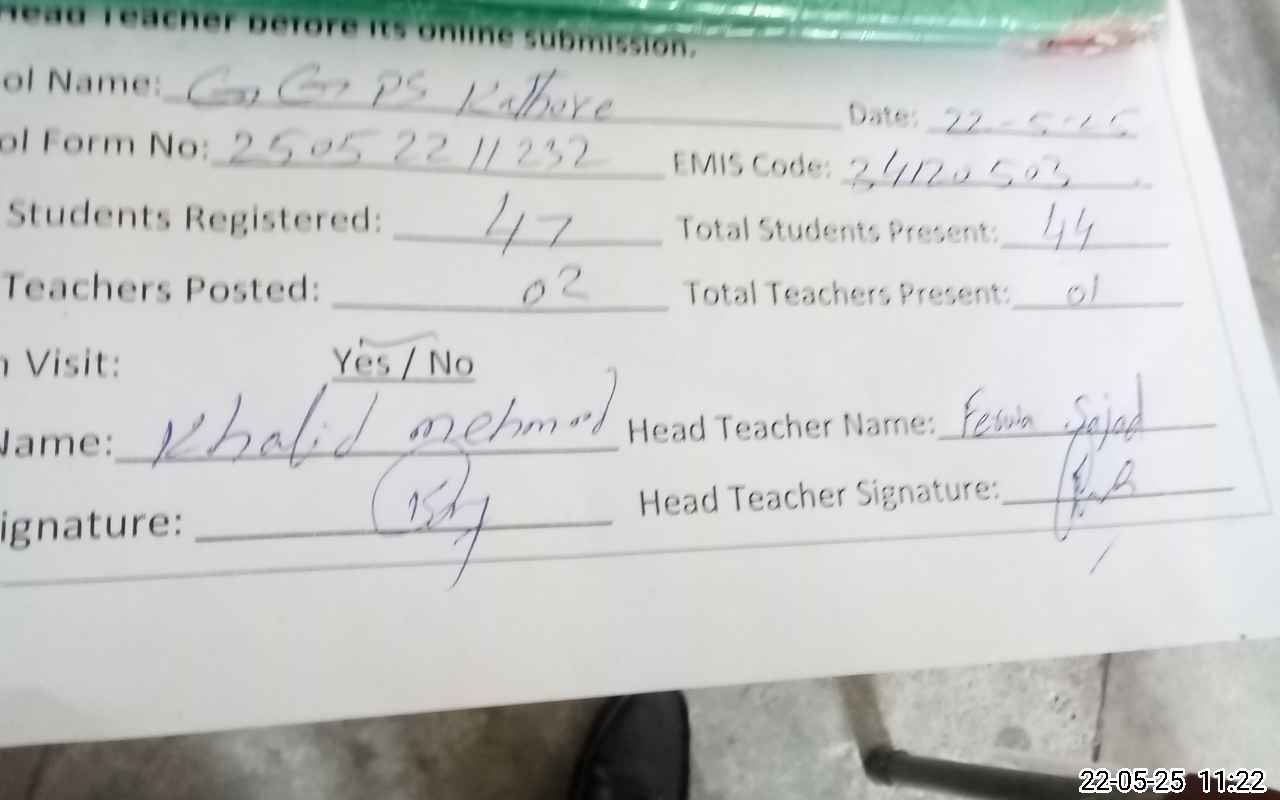 Head Teacher before its online submission.
ol Name: GGPS Kathore Date: 22-5-25
ol Form No: 250522 11232 EMIS Code: 34120503
Students Registered: 47 Total Students Present: 44
Teachers Posted: 02 Total Teachers Present: 01
n Visit: Yes / No
Name: Khalid mehmood Head Teacher Name: Sajad
ignature: Head Teacher Signature:
22-05-25 11:22